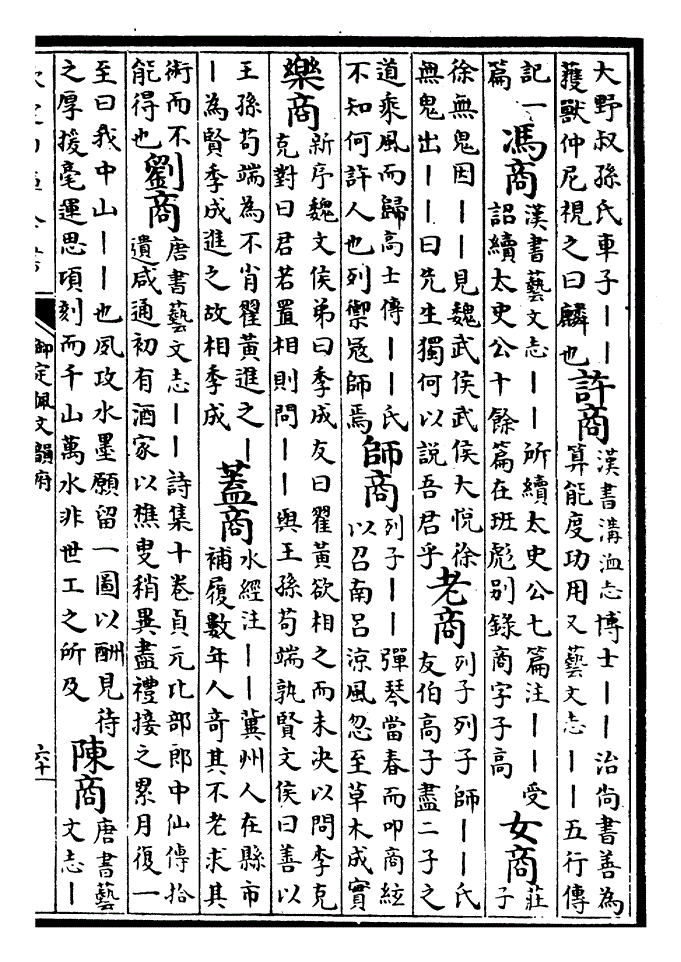 大野叔孫氏車子丨丨
獲獸仲尼視之曰麟也
許商
漢書溝洫志博士丨丨治尚書善為
算能度功用又藝文志丨丨五行傳
記一
篇
馮商
漢書藝文志丨丨所續太史公七篇注丨丨受
詔續太史公十餘篇在班彪别錄商字子高
女商
莊
子
徐無鬼因丨丨見魏武侯武侯大悅徐
無鬼出丨丨曰先生獨何以説吾君乎
老商
列子列子師丨丨氏
友伯高子盡二子之
道乘風而歸高士傳丨丨氏
不知何許人也列禦冦師焉
師商
列子丨丨彈琴當春而叩商絃
以召南吕涼風忽至草木成實
樂商
新序魏文侯弟曰季成友曰翟黃欲相之而未决以問李克
克對曰君若置相則問丨丨與王孫苟端孰賢文侯曰善以
王孫苟端為不肖翟黃進之丨
丨為賢季成進之故相季成
蓋商
水經注丨丨冀州人在縣市
補履數年人竒其不老求其
術而不
能得也
劉商
唐書藝文志丨丨詩集十卷貞元比部郎中仙傳拾
遺咸通初有酒家以樵叟稍異盡禮接之累月復一
至曰我中山丨丨也夙攻水墨願留一圖以酬見待
之厚援毫運思項刻而千山萬水非世工之所及
陳商
唐書藝
文志丨
御定佩文韻府
六十一